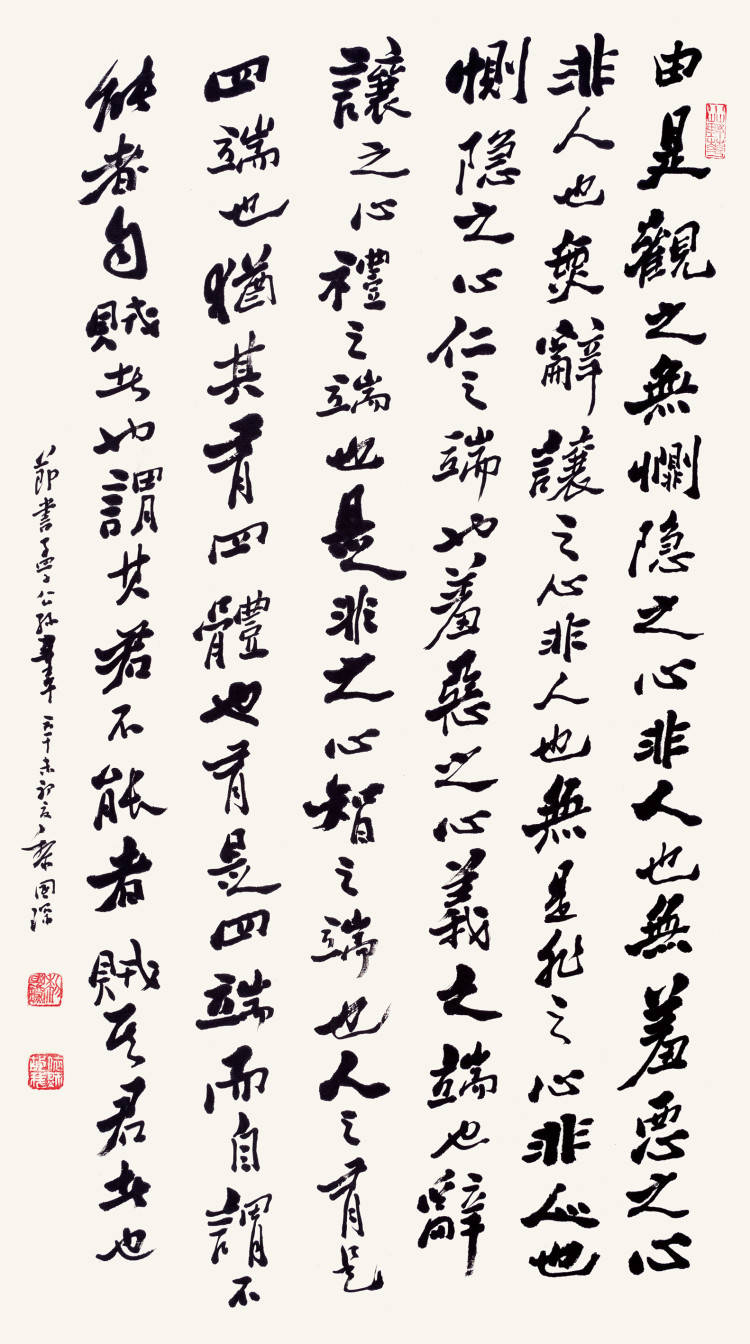 由是觀之無惻隐之心非人也無羞惡之心
非人也無辭讓之心非人也無是非之心非人也
惻隐之心仁之端也羞惡之心義之端也辭
讓之心禮之端也是非之心智之端也人之有是
四端也猶其有四體也有是四端而自謂不
能者自賊者也謂其君不能者賊其君者也
節書孟子公孫丑章 初夏 國琛